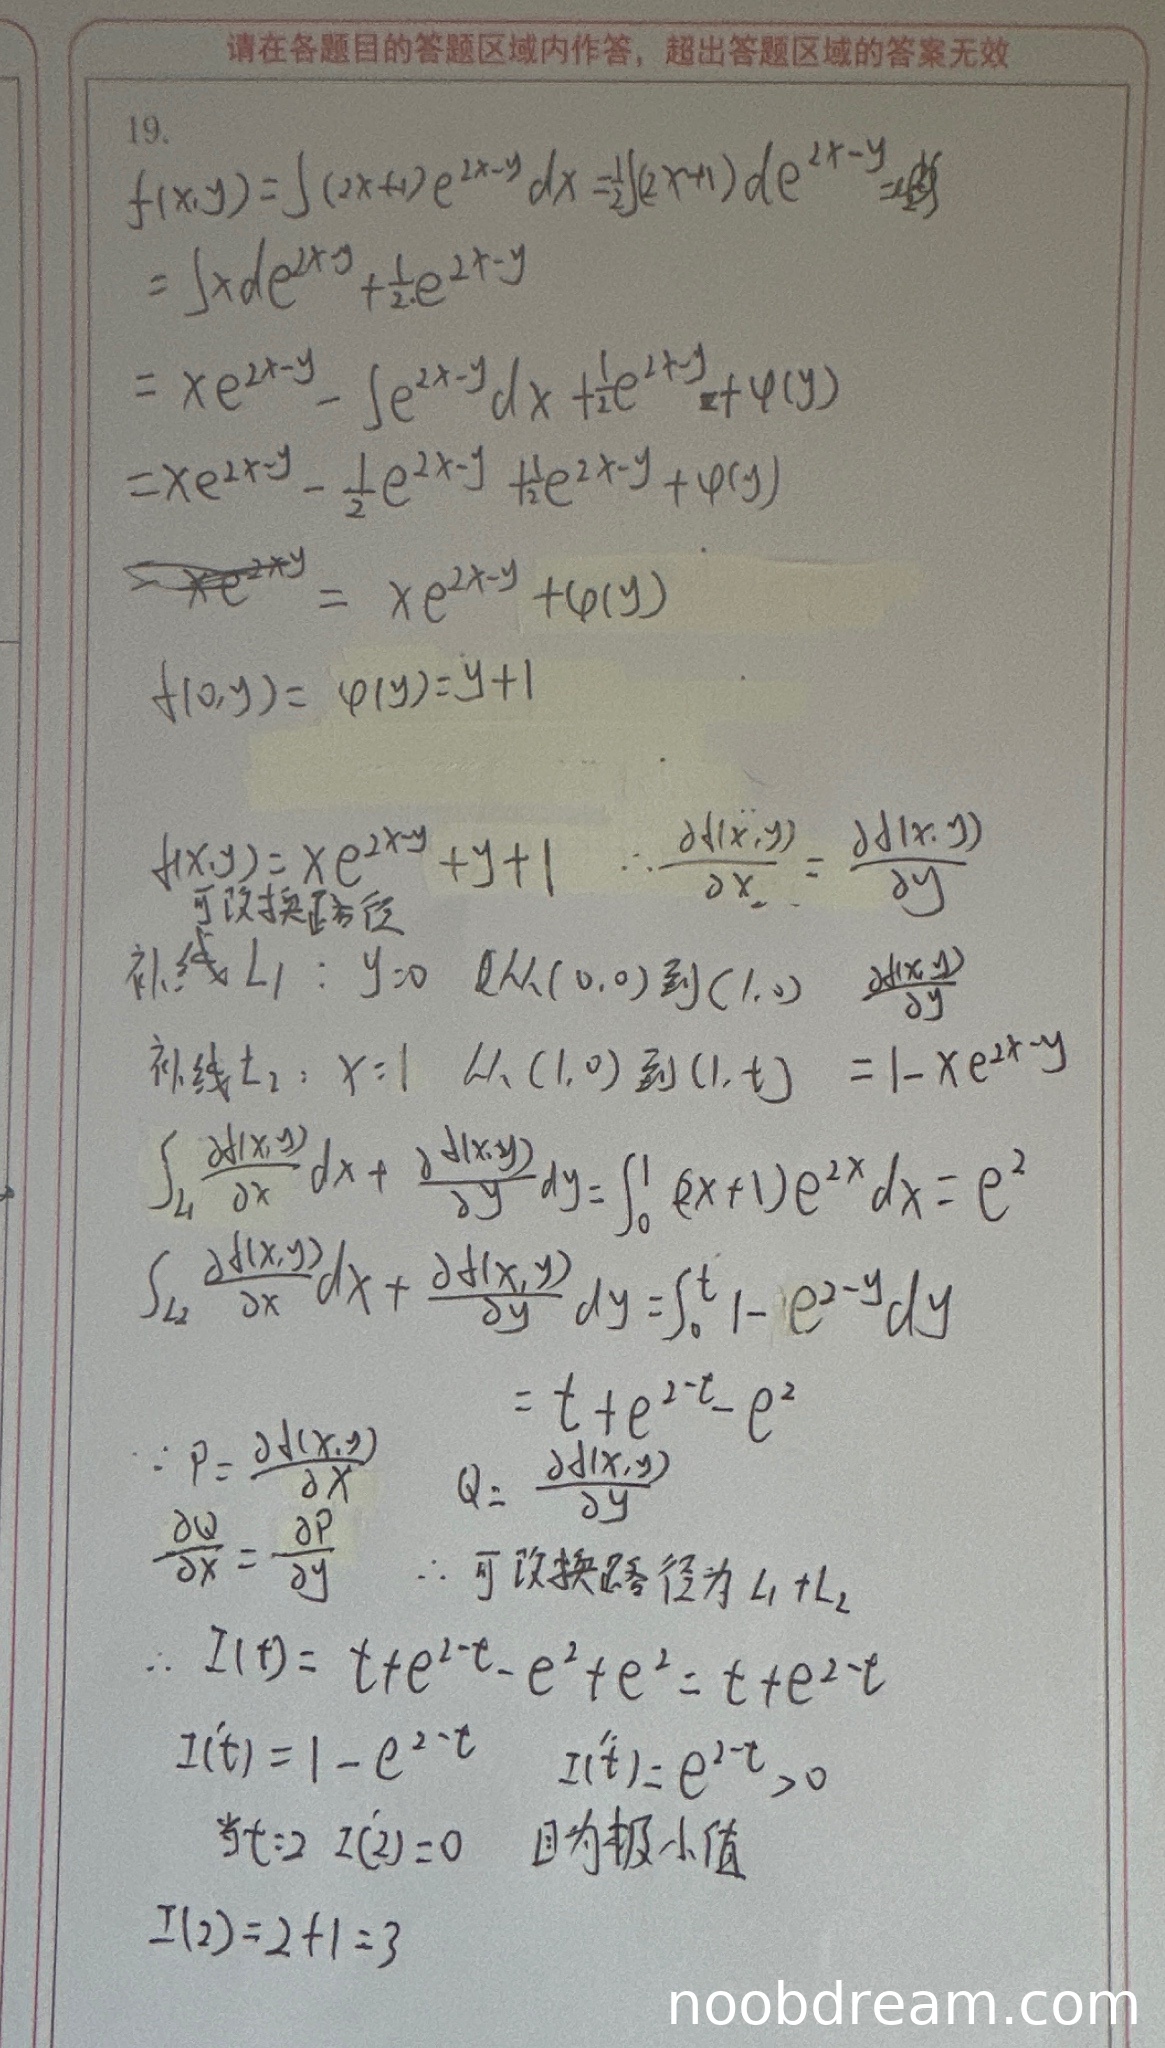 请在各题目的答题区域内作答，超出答题区域的答案无效
19.
f(x,y)=∫(2x+1)e^{2x-y}dx=½∫(2x+1)de^{2x-y}
=∫xde^{2x-y}+½e^{2x-y}
=xe^{2x-y}-∫e^{2x-y}dx+½e^{2x-y}+φ(y)
=xe^{2x-y}-½e^{2x-y}+½e^{2x-y}+φ(y)
=xe^{2x-y}+φ(y)
f(0,y)=φ(y)=y+1
f(x,y)=xe^{2x-y}+y+1 ∴ ∂f(x,y)/∂x = ∂f(x,y)/∂y
可改换路径
补线L₁: y=0 从(0,0)到(1,0) ∂f(x,y)/∂y
补线L₂: x=1 从(1,0)到(1,t) =1-xe^{2x-y}
∫_{L₁} ∂f(x,y)/∂x dx + ∂f(x,y)/∂y dy=∫₀¹(2x+1)e^{2x}dx=e²
∫_{L₂} ∂f(x,y)/∂x dx + ∂f(x,y)/∂y dy=∫₀ᵗ1-e^{2-y}dy
=t+e^{2-t}-e²
∵ P=∂f(x,y)/∂x Q=∂f(x,y)/∂y
∂Q/∂x=∂P/∂y ∴可改换路径为L₁+L₂
∴ I(t)=t+e^{2-t}-e²+e²=t+e^{2-t}
I'(t)=1-e^{2-t} I''(t)=e^{2-t}>0
当t=2 I'(2)=0 且为极小值
I(2)=2+1=3
noobdream.com